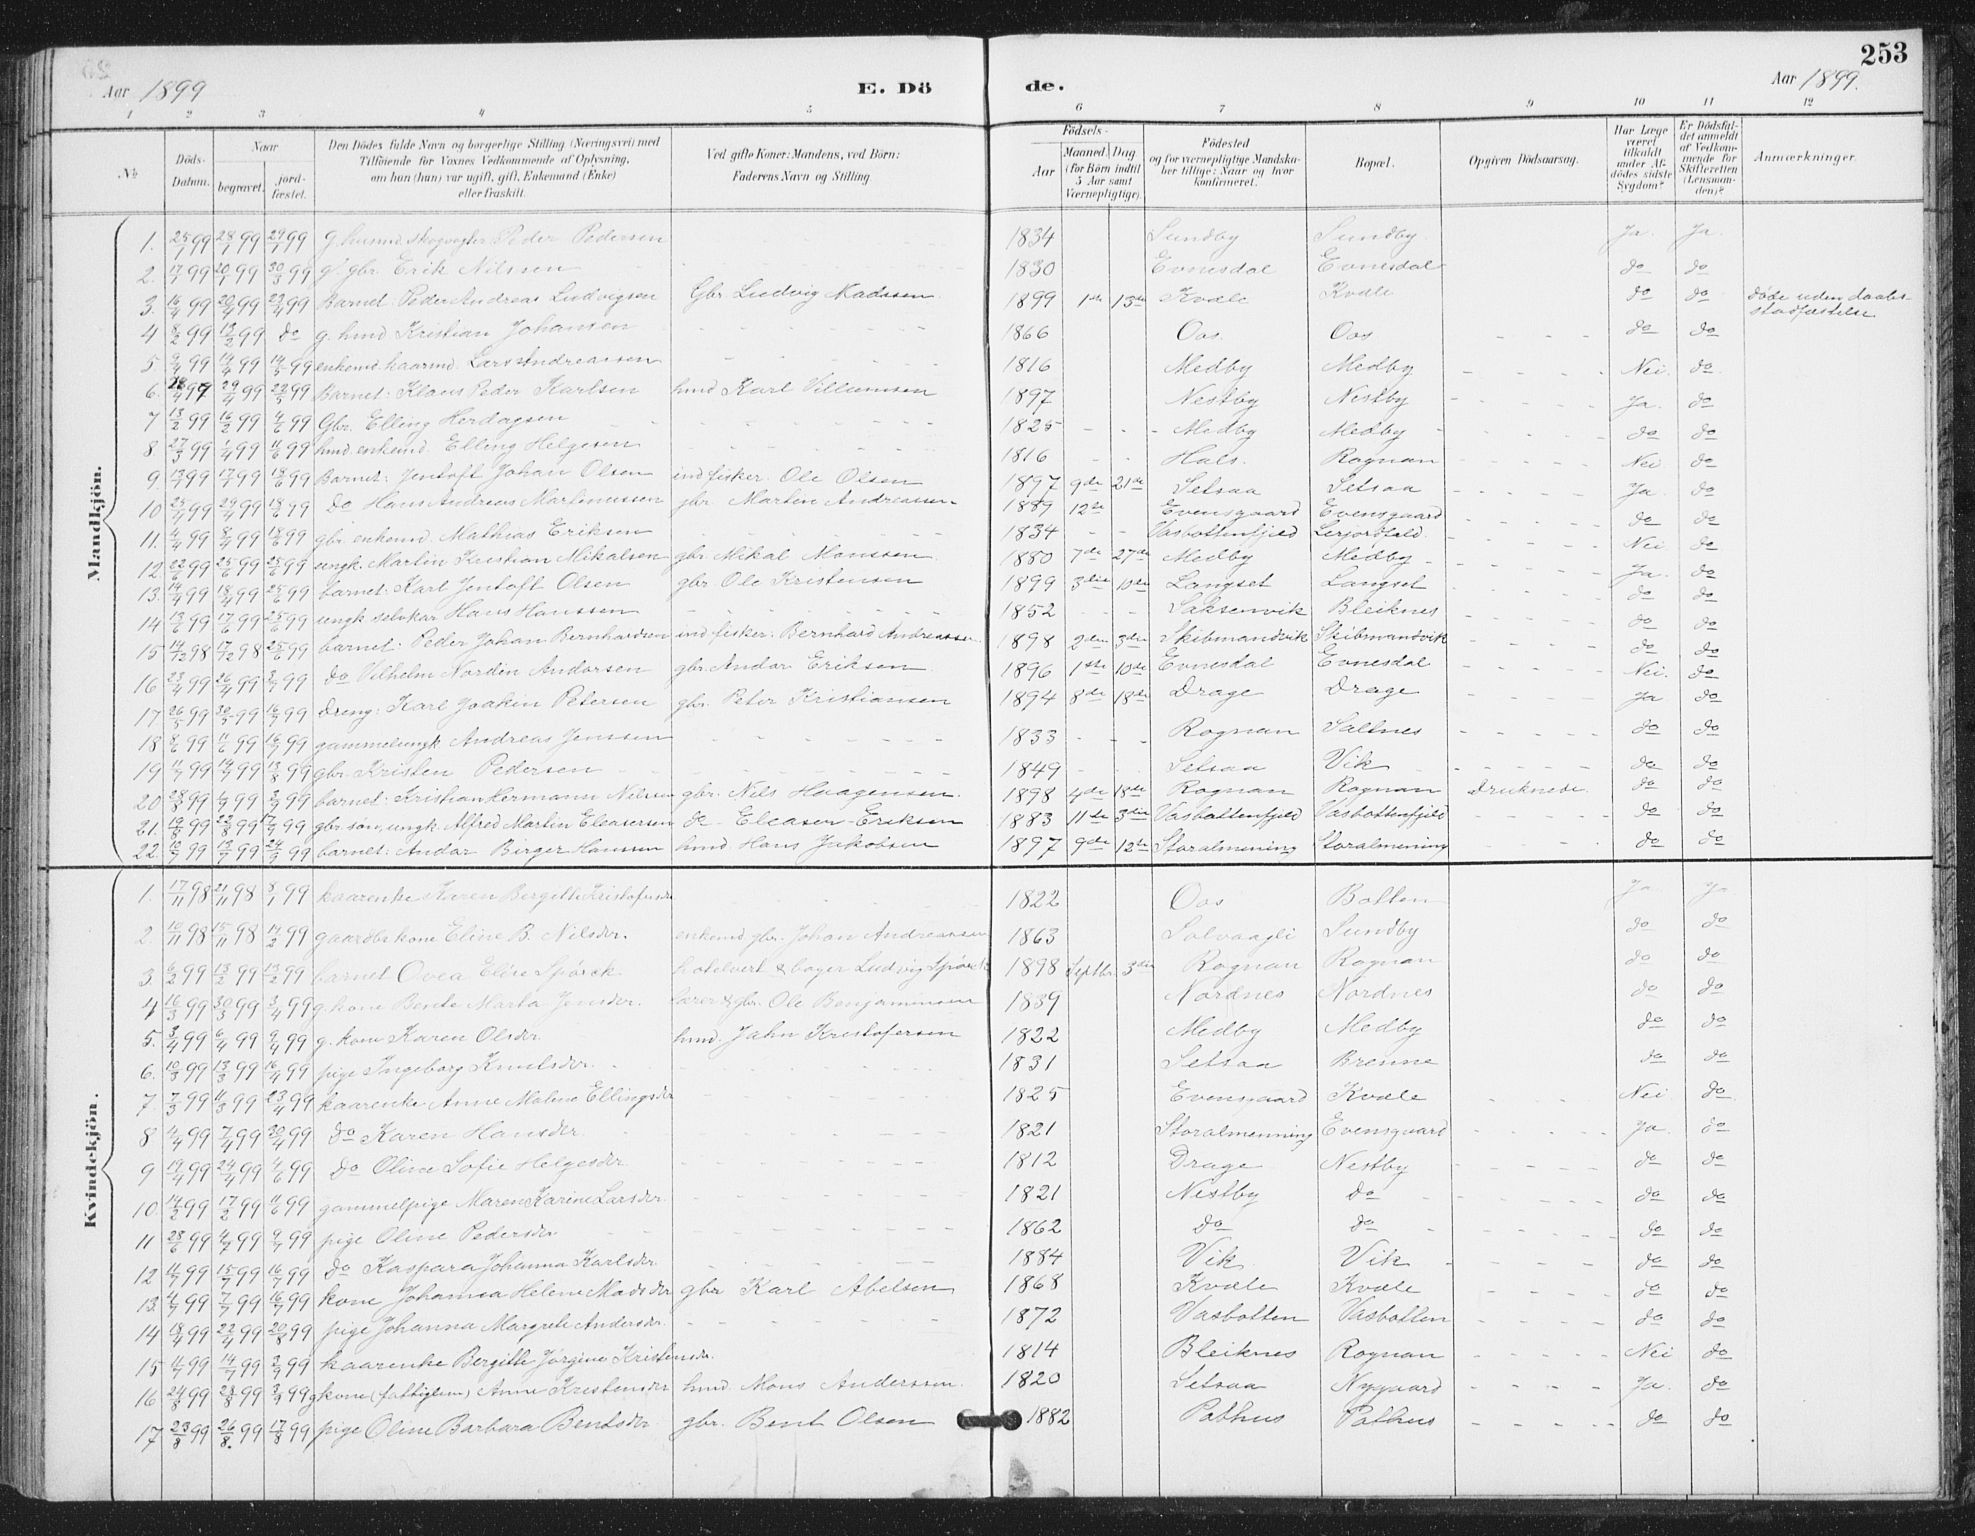 253
Aar 1899 E. Dö de. Aar 1899.
1 2 3 4 5 6 7 8 9 10 11 12
№ Döds-Datum. Naar begravet. jord-fæstet. Den Dödes fulde Navn og borgerlige Stilling (Næringsvei) med Tilföiende for Voxnes Vedkommende af Oplysning, om han (hun) var ugift, gift, Enkemand (Enke) eller fraskilt. Ved gifte Koner: Mandens, ved Börn: Faderens Navn og Stilling. Födsels- Aar Maaned. Dag (for Börn indtil 5 Aar samt Værnepligtige). Födested og for værnepligtige Mandskaber tillige: Naar og hvor konfirmeret. Bopæl. Opgiven Dödsaarsag. Har Læge været tilkaldt under Afdödes sidste Sygdom? Er Dödsfaldet anmeldt af Vedkommende for Skifteretten (Lensmanden)? Anmærkninger.
Mandkjön.
1. 25/1 99 28/1 99 29/1 99 g. husmd. skogvogter Peder Pedersen 1834 Sundby Sundby Ja. Ja.
2. 17/1 99 20/1 99 30/3 99 g. gbr. Erik Nilssen 1830 Evnesdal Evnesdal do do
3. 16/4 99 20/4 99 23/4 99 Barnet: Peder Andreas Ludvigsen Gbr. Ludvig Madssen 1899 1ste 13de Kvæle Kvæle do do døde uden daabs-stadfæstelse
4 8/2 99 13/2 99 do g. hmd Kristian Johansen 1866 Oos Oos do do
5 9/4 99 14/4 99 14/5 99 enkemd. kaarmd. Lars Andreassen 1816 Medby Medby Nei. do
6. 99 29/4 99 22/5 99 Barnet: Klaus Peder Karlsen hmd Karl Villumsen 1897 Nestby Nestby Ja. do
7 13/2 99 16/2 99 4/6 99 Gbr. Elling Herdagsen 1825 Medby Medby do do
8. 27/3 99 1/4 99 11/6 99 hmd. enkemd. Elling Helgesen 1816 Hals. Rognan Nei do
9 99 99 18/6 99 Barnet: Jentoft Johan Olsen ind. fisker. Ole Olsen 1897 9de 21de Setsaa Setsaa Ja. do
10 25/4 99 29/4 99 18/6 99 do Hans Andreas Martinussen gbr. Martin Andreassen 1889 12te Evensgaard Evensgaard do do
11. 4/4 99 8/4 99 18/6 99 gbr. enkemd. Mathias Eriksen 1834 Vasbottenfjeld Lerjordfald. Nei do
12 22/6 99 25/6 99 25/6 99 ungk. Martin Kristian Mikalsen gbr. Mikal Monssen 1880 7de 27de Medby Medby Ja. do
13. 14/4 99 18/4 99 25/6 99 barnet: Karl Jentoft Olsen gbr. Ole Kristensen 1899 3die 10de Langset Langset do do
14 13/6 99 17/6 99 25/6 99 ungk. selvkar Hans Hanssen 1852 Saksenvik Bleiknes do do
15 14/12 98 17/12 98 25/6 99 barnet: Peder Johan Bernhardsen ind. fisker: Bernhard Andreassen 1898 2den 3die Skibmandvik Skibmandvik do do
16 23/4 99 26/4 99 99 do Vilhelm Nordin Andorsen gbr. Andor Eriksen 1896 1ste 10de Evnesdal Evnesdal Nei. do
17 26/5 99 30/5 99 16/7 99 dreng: Karl Joakim Petersen gbr. Peter Kristiansen 1894 8de 18de Drage Drage Ja do
18 8/6 99 11/6 99 16/7 99 gammelungk. Andreas Jenssen 1833 Rognan Saltnes do do
19 11/7 99 14/7 99 13/8 99 gbr. Kristen Pedersen 1849 Setsaa Vik do do
20 28/8 99 99 3/9 99 barnet: Kristian Hermann Nilsen gbr. Nils Haagensen. 1898 4de 18de Rognan Rognan Druknede. do do
21. 19/8 99 22/8 99 17/9 99 gbr. søn, ungk. Alfred Martin Eleasersen do Eleaser Eriksen 1883 11te 3die Vasbottenfjeld Vasbottenfjeld do do
22. 10/7 99 13/7 99 24/9 99 barnet: Andor Birger Hanssen hmd. Hans Jakobsen 1897 9de 12te Storalmening Storalmening do do
Kvindekjön.
1. 17/11 98 21/11 98 8/1 99 kaarenke Karen Bergitte Kristofersdr 1822 Oos Botten Ja Ja
2. 10/11 98 15/11 98 14/2 99 gaardbs kone Eline B. Nilsdr. enkemd gbr. Johan Andreassen 1863 Solvaagli Sundby do do
3. 6/2 99 13/2 99 13/2 99 barnet Ovea Elise Spørck hotelvert & bager Ludvig Spørck 1898 Septbr. 3die Rognan Rognan do do
4 16/3 99 30/3 99 3/4 99 g. kone Bente Marta Jensdr. lærer & gbr. Ole Benjaminsen 1839 Nordnes Nordnes do do
5. 3/4 99 6/4 99 9/4 99 g. kone Karen Olsdr. hmd. Jahn Kristofersen 1822 Medby Medby do do
6. 10/3 99 13/3 99 16/4 99 pige Ingeborg Knutsdr. 1831 Setsaa Brenne do do
7. 7/3 99 11/3 99 23/4 99 kaarenke Anne Malene Ellingsdr 1825 Evensgaard Kvæle Nei do
8 4/4 99 7/4 99 30/4 99 do Karen Hansdr. 1821 Storalmenning Evensgaard Ja do
9 19/4 99 24/4 99 4/6 99 do Oline Sofie Helgesdr 1812 Drage Nestby do do
10. 14/2 99 17/2 99 11/6 99 gammelpige Maren Karine Larsdr. 1821 Nestby do do do
11 28/6 99 4/7 99 9/7 99 pige Oline Pedersdr 1862 do do do do
12 11/7 99 15/7 99 16/7 99 do Kaspara Johanna Karlsdr. 1884 Vik Vik do do
13. 4/7 99 7/7 99 16/7 99 kone Johanna Helene Madsdr gbr Karl Abelsen 1868 Kvæle Kvæle do do
14 18/4 99 22/4 99 20/8 99 pige Johanna Margrete Andersdr. 1872 Vasbotten Vasbotten do do
15 11/7 99 14/7 99 99 kaarenke Bergitte Jørgine Kristensdr. 1814 Bleiknes Rognan Nei do
16 24/8 99 28/8 99 3/9 99 gkone (fattiglem) Anne Kristensdr hmd. Mons Anderssen. 1820 Setsaa Nygaard Ja. do
17 23/8 99 26/8. 99 17/8 99 pige Oline Barbara Bentsdr gbr. Bent Olsen 1882 Pothus Pothus do do